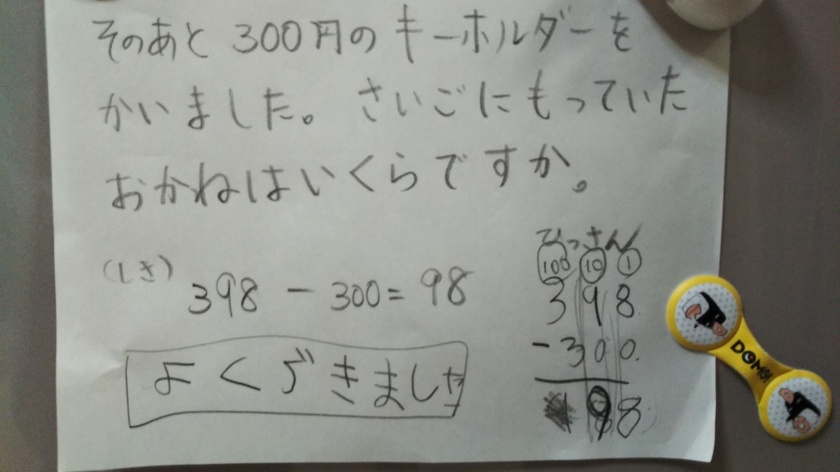 そのあと 300円の キーホルダーを
かいました。 さいごにもっていた
おかねはいくらですか。
(しき) 398 - 300 = 98
よくできました
ひっさん
100 10 1
398
-300
98
DOMO!